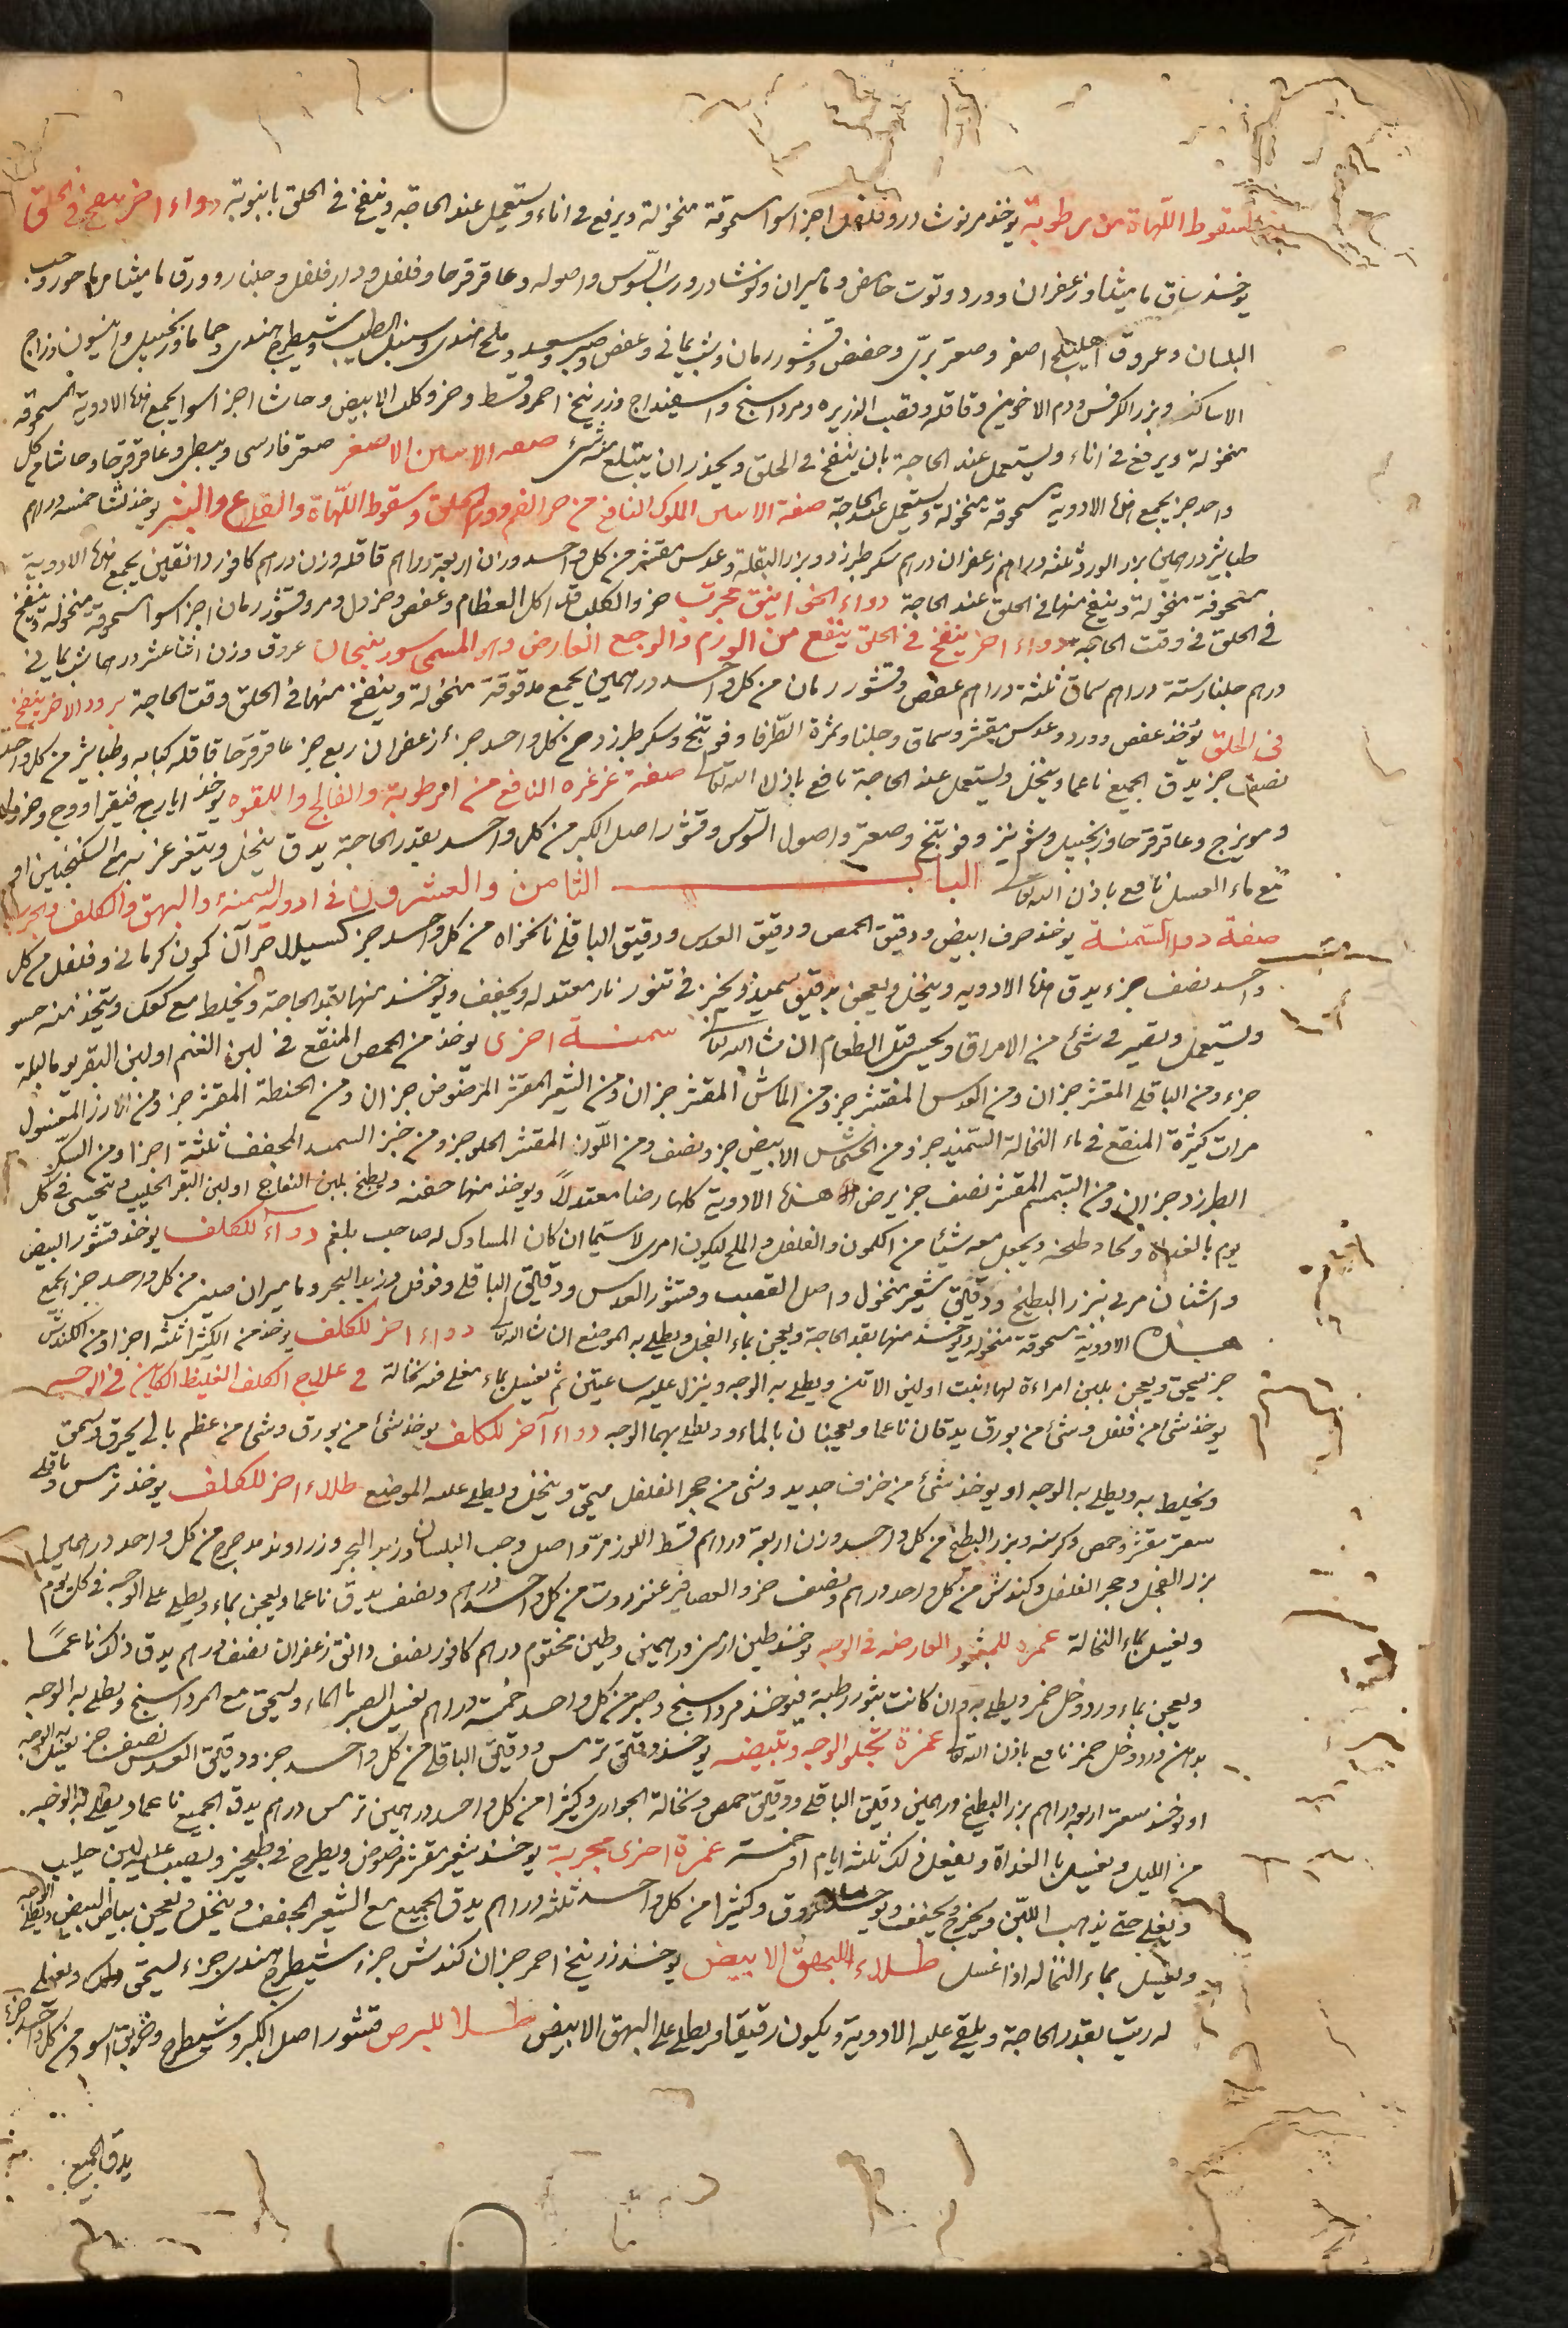 لسقوط اللهاة من رطوبة يوخذ مر نوشادر وفلفل اجزا سوا مسحوقة منخولة ويرفع في اناء ويستعمل عند الحاجة وينفخ في الحلق بانبوبة دواء اخر ينفخ في الحلق
يوخذ ساق ماميثا وزعفران وورد وتوت حامض وماميران ونوشادر ورب السوس واصوله وعاقرقرحا وفلفل ودارفلفل وجلنار وورق ماميثا وحب
البلسان وعروق اهليلج اصفر وصعتر بري وحضض وقشور رمان وشب يماني وعفص وصبر وسعد وملح هندي وسنبل الطيب وشيطرج هندي وحماما وزنجبيل وانيسون وزاج
الاساكفة وبزر الكرفس ودم الاخوين وقاقلة وقصب الذريرة ومرداسنج واسفيداج وزرنيخ احمر وقسط وخرو كلب الابيض وحاشا اجزا سوا يجمع هذه الادوية مسحوقة
منخولة ويرفع في اناء ويستعمل عند الحاجة بان ينفخ في الحلق ويحذر ان يبتلع منه شئ صفة الاصغر صعتر فارسي وعاقرقرحا وحاشا من كل
واحد جز يجمع هذه الادوية مسحوقة منخولة ويستعمل عند الحاجة صفة الملوك النافع من حر الفم وورم الحلق وسقوط اللهاة والقلاع والبثر يوخذ نشا خمسة دراهم
طباشير درهمين بزر الورد ثلثة دراهم زعفران درهم سكر طبرزد وبزر البقلة وعدس مقشر من كل واحد وزن اربعة دراهم قاقلة وزن درهم كافور دانقين يجمع هذه الادوية
مسحوقة منخولة وينفخ منها في الحلق عند الحاجة دواء الخوانيق مجرب خرو الكلب قد اكل العظام وعفص وخردل ومر وقشور رمان اجزا سوا مسحوقة منخولة وينفخ
في الحلق في وقت الحاجة دواء اخر ينفخ في الحلق ينفع من الورم والوجع العارض وهو المسمى سورنجان عروق وزن اثنا عشر درهما شب يماني
درهم جلنار ستة دراهم سماق ثلثة دراهم عفص وقشور رمان من كل واحد درهمين يجمع مدقوقة منخولة وينفخ منها في الحلق وقت الحاجة برود الاخر ينفخ
في الحلق يؤخذ عفص وورد وعدس مقشر وسماق وجلنار وثمرة الطرفا وفوتنج وسكر طبرزد من كل واحد جزء زعفران ربع جز عاقرقرحا قاقلة كبابه وطباشير من كل واحد
نصف جز يدق الجميع ناعما وينخل ويستعمل عند الحاجة نافع باذن الله تعالى صفة غرغره النافع من الرطوبة والفالج واللقوه يوخذ ايارج فيقرا ووج وخردل
ومويزج وعاقرقرحا وزنجبيل وشونيز وفوتنج وصعتر واصول السوس وقشور اصل الكبر من كل واحد بقدر الحاجة يدق وينخل ويتغرغر به مع السكنجبين او
مع ماء العسل نافع باذن الله تعالى الباب الثامن والعشرون في ادوية السمنة والبهق والكلف والجرب
صفة دواء السمنة يوخذ حرف ابيض ودقيق الحمص ودقيق العدس ودقيق الباقلى نانخواه من كل واحد جز كسيلا جزآن كمون كرماني وفلفل من كل
واحد نصف جزء يدق هذه الادوية وينخل ويعجن بدقيق سميد ويخبز في تنور نار معتدله ويجفف ويوخذ منها بقدر الحاجة ويخلط مع كعك ويتخذ منه حسو
ويستعمل ويصير في شئ من الامراق ويحسى قبل الطعام ان شا الله تعالى سمنة اخرى يوخذ من الحمص المنقع في لبن الغنم او لبن البقر يوما وليلة
جزء ومن الباقلى المقشر جزان ومن العدس المقشر جز ومن الماش المقشر جزان ومن الشعير المقشر المرضوض جزان ومن الحنطة المقشر جز ومن الارز المغسول
مرات كثيرة المنقع في ماء النخالة السميد جز ومن الخشخاش الابيض جز ونصف ومن اللوز المقشر الحلو جز ومن خبز السميد المجفف ثلثة اجزا ومن السكر
الطبرزد جزان ومن السمسم المقشر نصف جز يرض هذه الادوية كلها رضا معتدلا ويوخذ منها حفنه ويطبخ بلبن النعاج او لبن البقر الحليب ويتحسى في كل
يوم بالغداة ويجعل معه شيئا من الكمون والفلفل والملح ليكون امرى لا سيما ان كان صاحب بلغم دواء الكلف يوخذ قشور البيض
واشنان مربى ببزر البطيخ ودقيق شعير منخول واصل القصب وقشور العدس ودقيق الباقلى وفوفل وزبد البحر وماميران صيني من كل واحد جز يجمع
هذه الادوية مسحوقة منخولة ويوخذ منها بقدر الحاجة ويعجن بماء الفجل ويطلى به الموضع ان شا الله تعالى دواء اخر للكلف يوخذ من الكثيرا ثلثة اجزا ومن الكندس
جز يسحق ويعجن بلبن امراءة لها بنت او لبن الاتن ويطلى به الوجه وينزل عليه ساعتين ثم يغسل بماء مغلى فيه نخالة في علاج الكلف الغليظ الكاين في الوجه
يوخذ شئ من فلفل وشئ من بورق يدقان ناعما ويعجنان بالماء ويطلى بهما الوجه دواء آخر للكلف يوخذ شئ من بورق وشئ من عظم بالي يحرق ويسحق
ويخلط به ويطلى به الوجه او يوخذ شئ من خزف جديد وشئ من حجر الفلفل يسحق وينخل ويطلى عليه الموضع طلاء اخر للكلف يوخذ ترمس وباقلى
مقشر وحمص وكرسنه وبزر البطيخ من كل واحد وزن اربعة دراهم قسط اللوز مر واصل وحب البلسان وزبد البحر وزراوند مدحرج من كل واحد درهمين
بزر الفجل وحجر الفلفل وكندس من كل واحد درهم ونصف خرو العصافير عنزروت من كل واحد درهم ونصف يدق ناعما ويعجن بماء ويطلى على الوجه في كل يوم
ويغسل بماء النخالة غمره للبثور العارضه في الوجه يوخذ طين ارمني درهمين وطين مختوم درهم كافور نصف دانق زعفران نصف درهم يدق ذلك ناعما
ويعجن بماء ورد وخل خمر ويطلى به وان كانت بثور رطبة فيوخذ مرداسنج وصبر من كل واحد خمسة دراهم يغسل الصبر بالماء ويسحق مع المرداسنج ويطلى به الوجه
بدهن ورد وخل خمر نافع باذن الله تعالى غمرة تجلو الوجه وتبيضه يوخذ دقيق ترمس ودقيق الباقلى من كل واحد جز ودقيق العدس نصف جز يغسل به الوجه
او يوخذ اربعة دراهم بزر البطيخ درهمين دقيق الباقلى ودقيق حمص ونخالة الحواري وكثيرا من كل واحد درهمين ترمس درهم يدق الجميع ناعما ويطلى به الوجه
من الليل ويغسل بالغداة ويفعل ذلك ثلثة ايام او خمسة غمرة اخرى مجربة يوخذ شعير مقشر مرضوض ويطرح في طنجير ويصب عليه لبن حليب
ويغلى حتى يذهب اللبن ويخرج ويجفف ويوخذ عروق وكثيرا من كل واحد ثلثة دراهم يدق الجميع مع الشعير المجفف وينخل ويعجن ببياض البيض ويطلى الوجه
ويغسل بماء النخاله اذا غسل طلاء للبهق الابيض يوخذ زرنيخ احمر جزان كندش جزء شيطرج هندي جزء يسحق ويغلى
له زيت بقدر الحاجة ويلقى عليه الادوية ويكون رقيقا ويطلى على البهق الابيض طلا للبرص قشور اصل الكبر وشيطرج وخربق اسود من كل واحد جزء
يدق الجميع